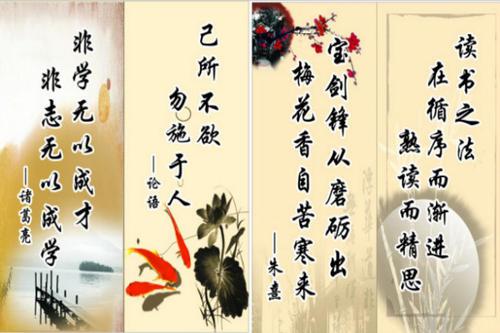 非学无以成才
非志无以成学
——诸葛亮
己所不欲
勿施于人
——论语
宝剑锋从磨砺出
梅花香自苦寒来
——朱熹
读书之法
在循序而渐进
熟读而精思